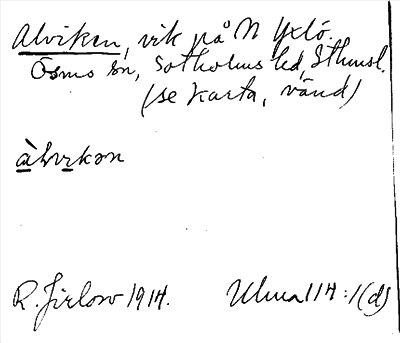 Alviken, vik på N Yxlö.
Ösmo sn, Sotholms hd, Sthmsl.
(se karta, vänd)
àlvikən
R. Jirlow 1914. Ulma 114:1(d)